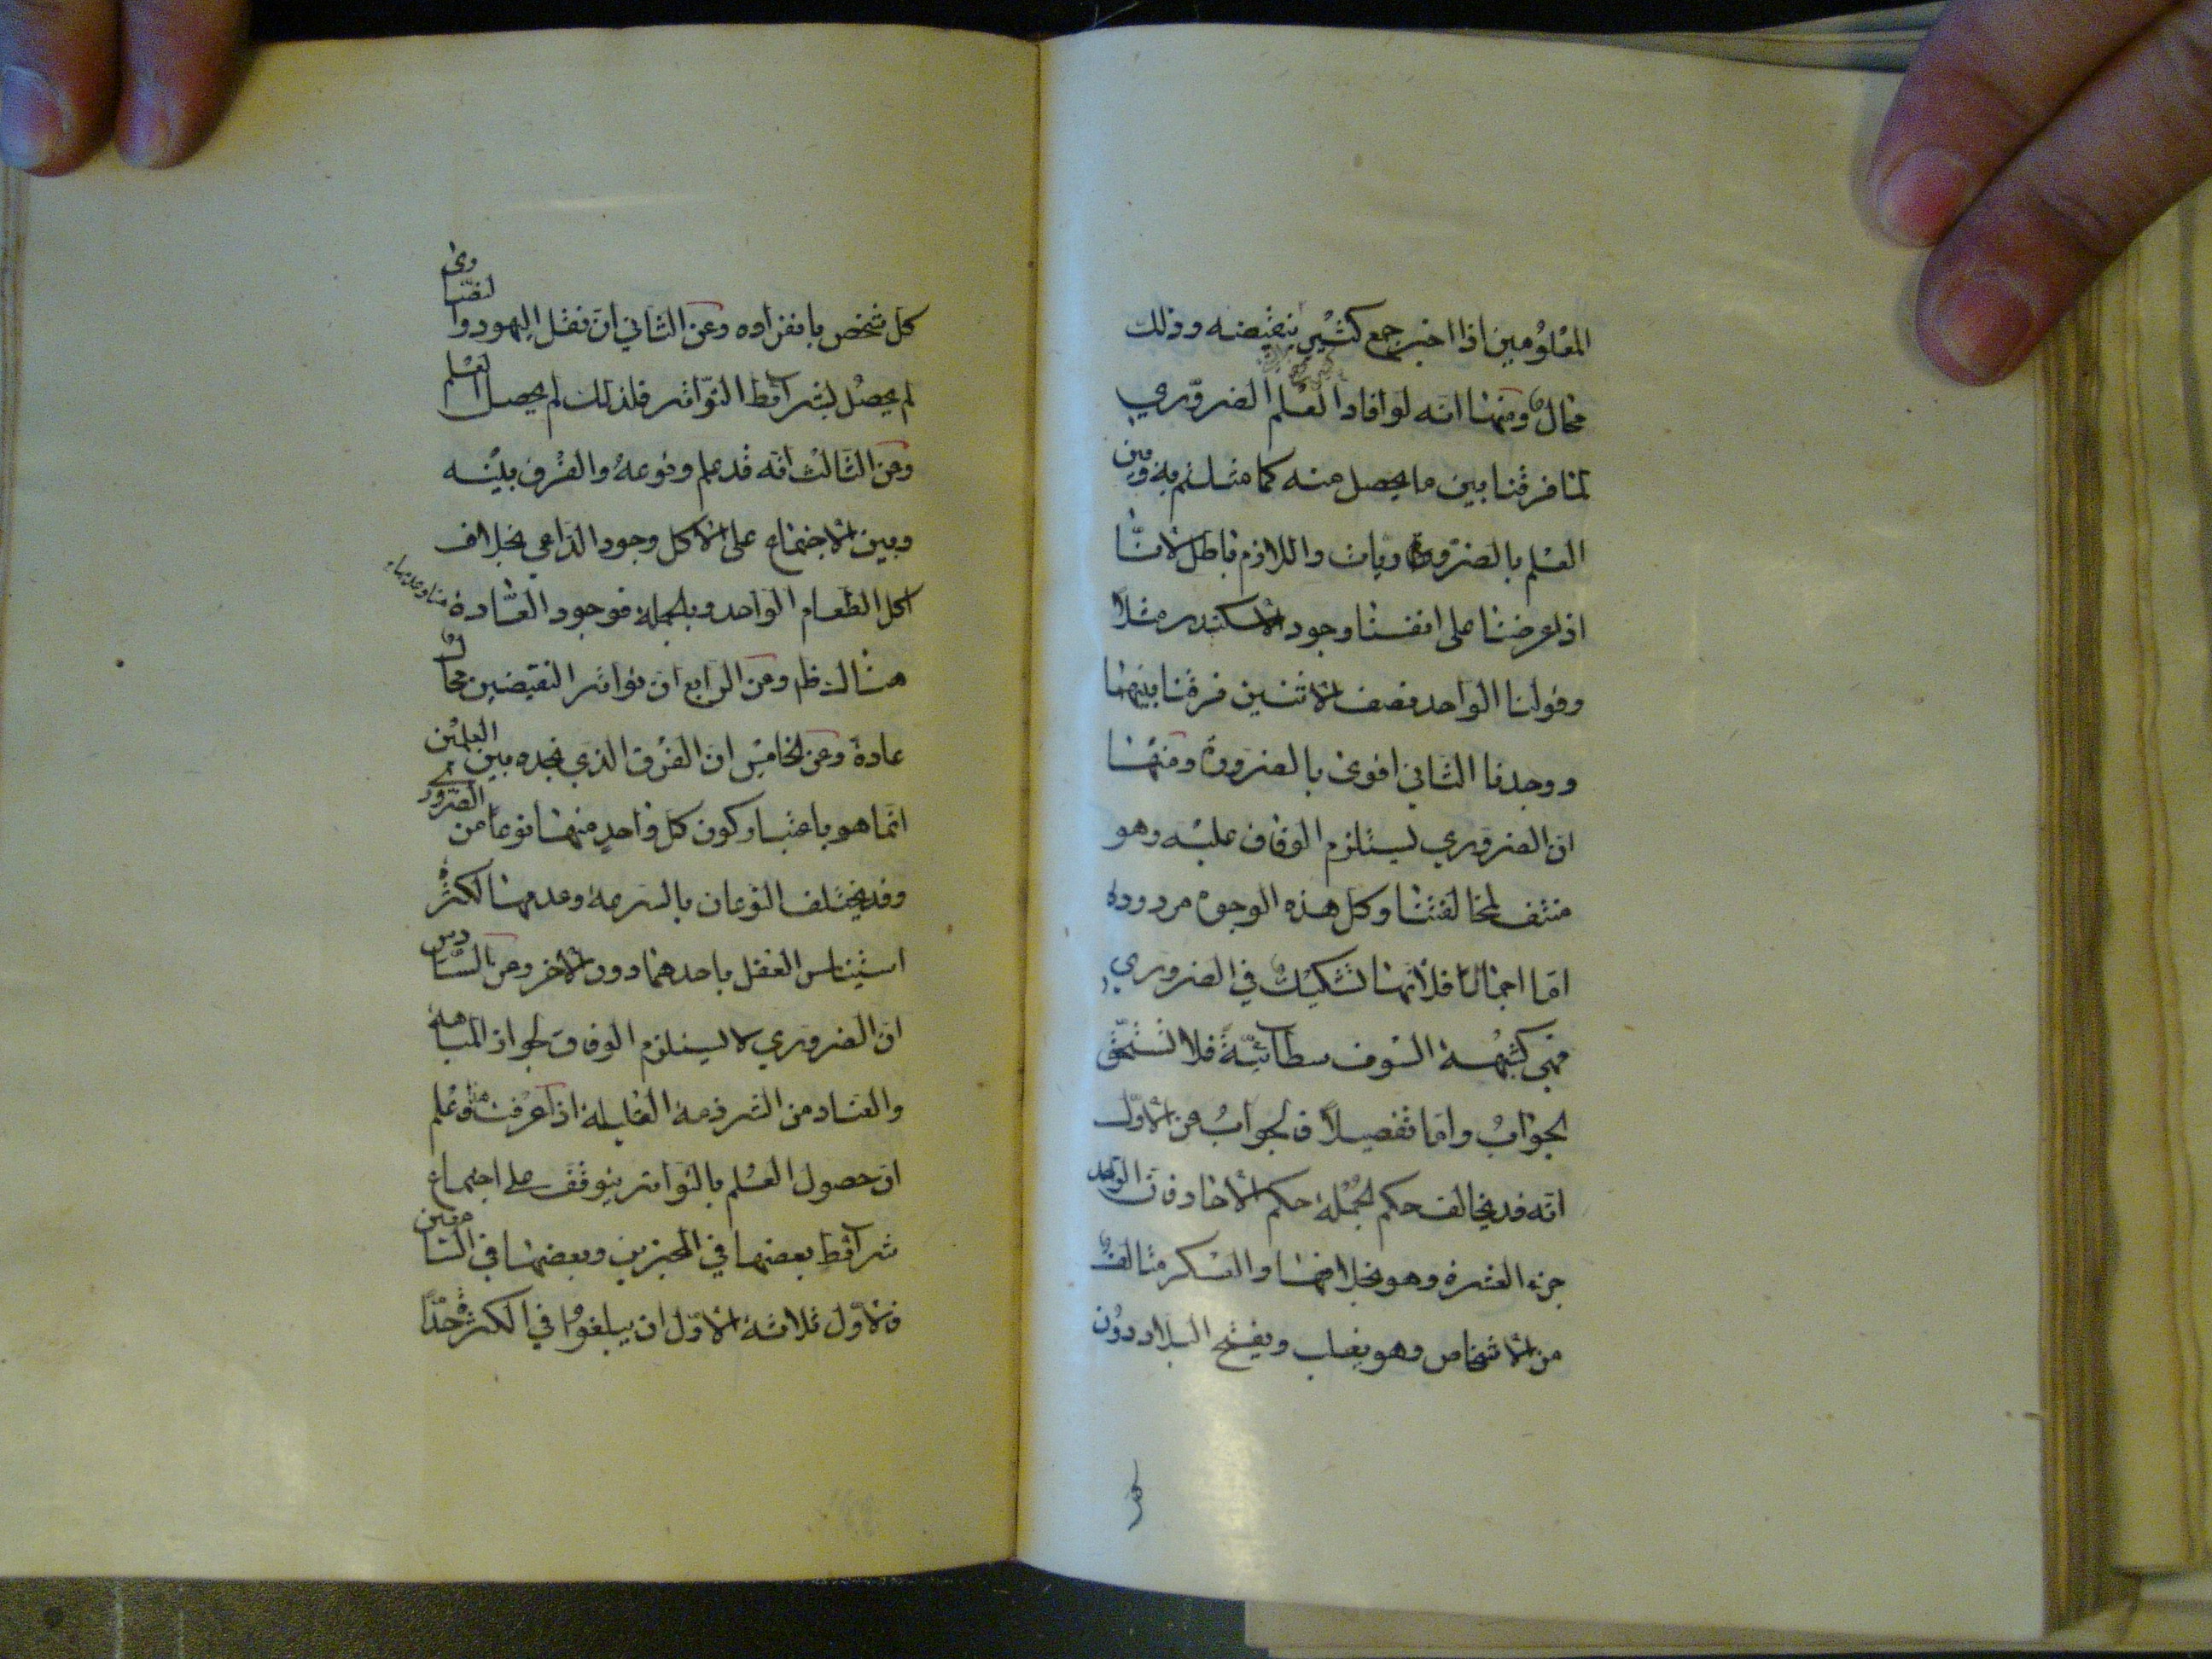 المعلومين اذا اخبر جمع كثير بنقيضه وذلك
محال ومنها انه لو افاد العلم الضروري
لما فرقنا بين ما يحصل منه كما مثلتم به وبين
العلم بالضروريات واللازم باطل لانا
اذا عرضنا على انفسنا وجود الاسكندر مثلاً
وقولنا الواحد نصف الاثنين فرقنا بينهما
ووجدنا الثاني اقوى بالضرورة ومنها
ان الضروري يستلزم الوفاق عليه وهو
منتف لمخالفتنا وكل هذه الوجوه مردودة
اما اجمالا فلأنها تشكيك في الضروري
فهي كشبهة السوفسطائية فلا تستحق
الجواب واما تفصيلاً فالجواب عن الاول
انه قد يخالف حكم الجملة حكم الاحاد فان الواحد
جزء العشرة وهو بخلافها والعسكر متألف
من الاشخاص وهو يغلب ويفتح البلاد دون
كل
كل شخص بانفراده وعن الثاني ان نقل اليهود والنصارى
لم يحصل بشرائط التواتر فلذلك لم يحصل العلم
وعن الثالث انه قد علم وقوعه والفرق بينه
وبين الاجتماع على الاكل وجود الداعي بخلاف
اكل الطعام الواحد وبالجملة فوجود العادة هنا وعدمها
هناك ظ وعن الرابع ان تواتر النقيضين محال
عادة وعن الخامس ان الفرق الذي نجده بين العلمين
انما هو باعتبار كون كل واحد منهما نوعا من الضروري
وقد يختلف النوعان بالسرعة وعدمها لكثرة
استيناس العقل باحدهما دون الاخر وعن السادس
ان الضروري لا يستلزم الوفاق لجواز المباهتة
والعناد من الشرذمة القليلة اذا عرفت هذا فاعلم
ان حصول العلم بالتواتر يتوقف على اجتماع
شرائط بعضها في المخبرين وبعضها في السامعين
فالاول ثلاثة الاول ان يبلغوا في الكثرة حداً